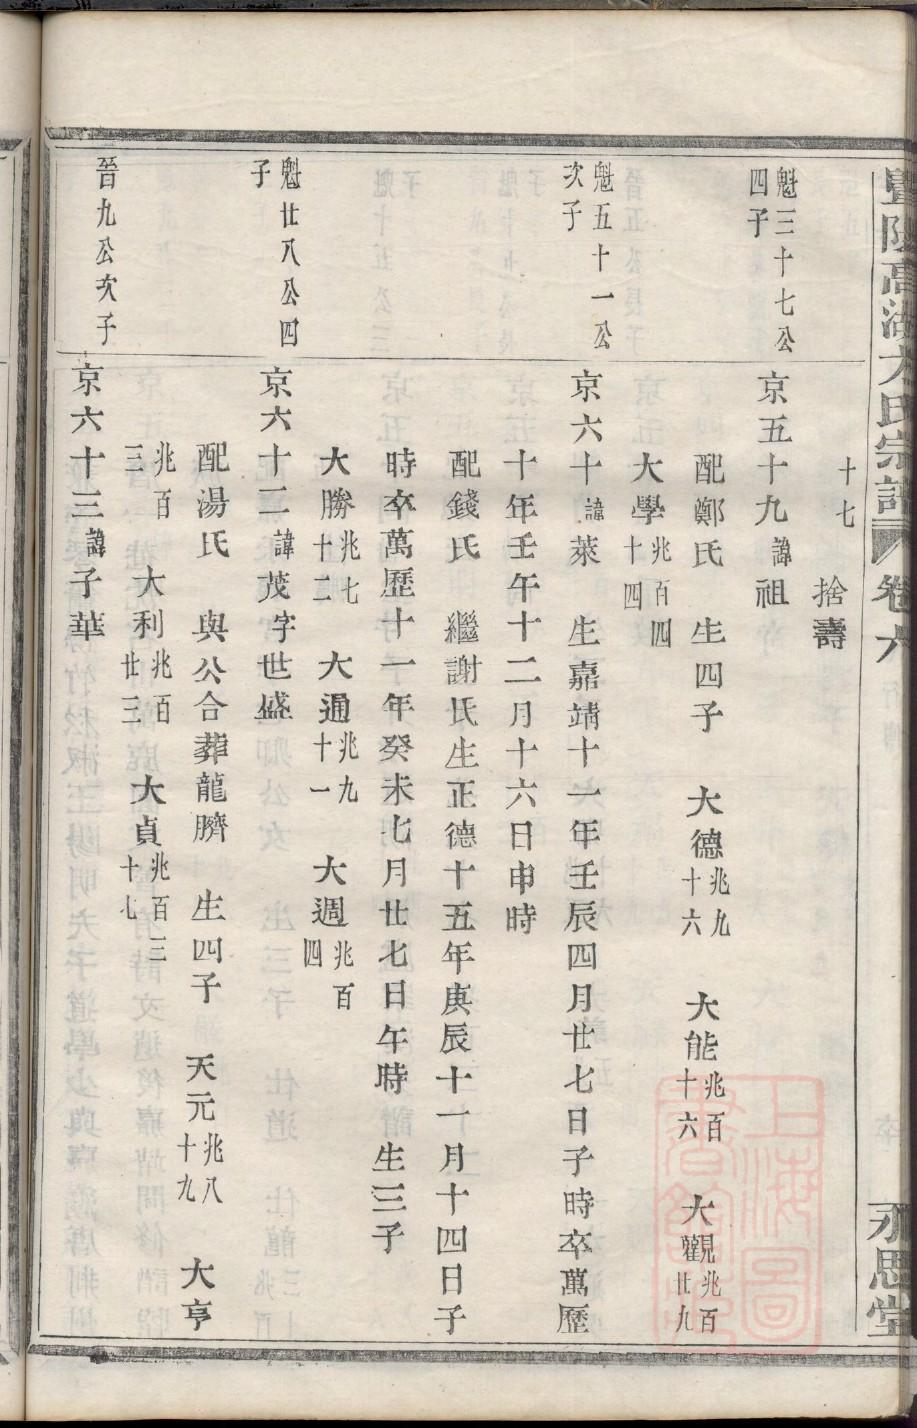 高湖方氏宗譜 卷六
永思堂
十七 捨壽
魁三十七公
四子
京五十九諱祖
配鄭氏 生四子 大德兆九十六 大能兆百十六 大觀兆百廿九
大學兆百四十四
魁五十一公
次子
京六十諱萊 生嘉靖十一年壬辰四月廿七日子時卒萬歷
十年壬午十二月十六日申時
配錢氏 繼謝氏生正德十五年庚辰十一月十四日子
時卒萬歷十一年癸未七月廿七日午時 生三子
大勝兆七十二 大通兆九十一 大週兆百四
魁廿八公四
子
京六十二諱茂字世盛
配湯氏 與公合葬龍臍 生四子 天元兆八十九 大亨
兆百三 大利兆百廿三 大貞兆百三十七
晉九公次子
京六十三諱子華